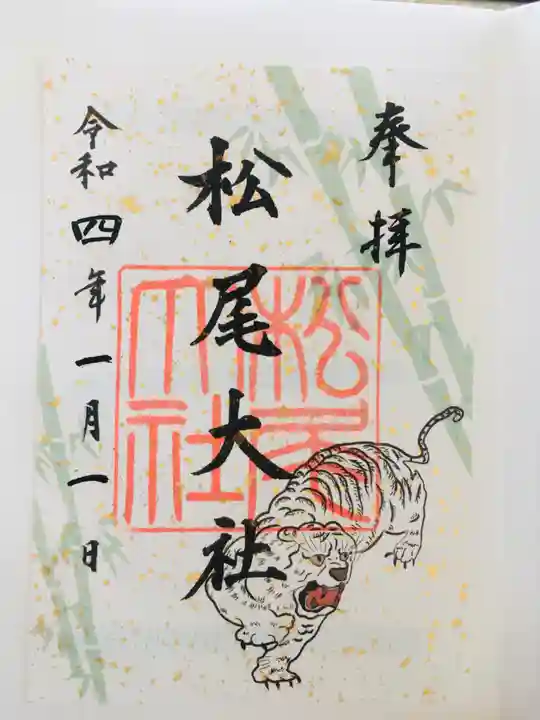 奉拝
松尾大社
松尾大社
令和四年一月一日